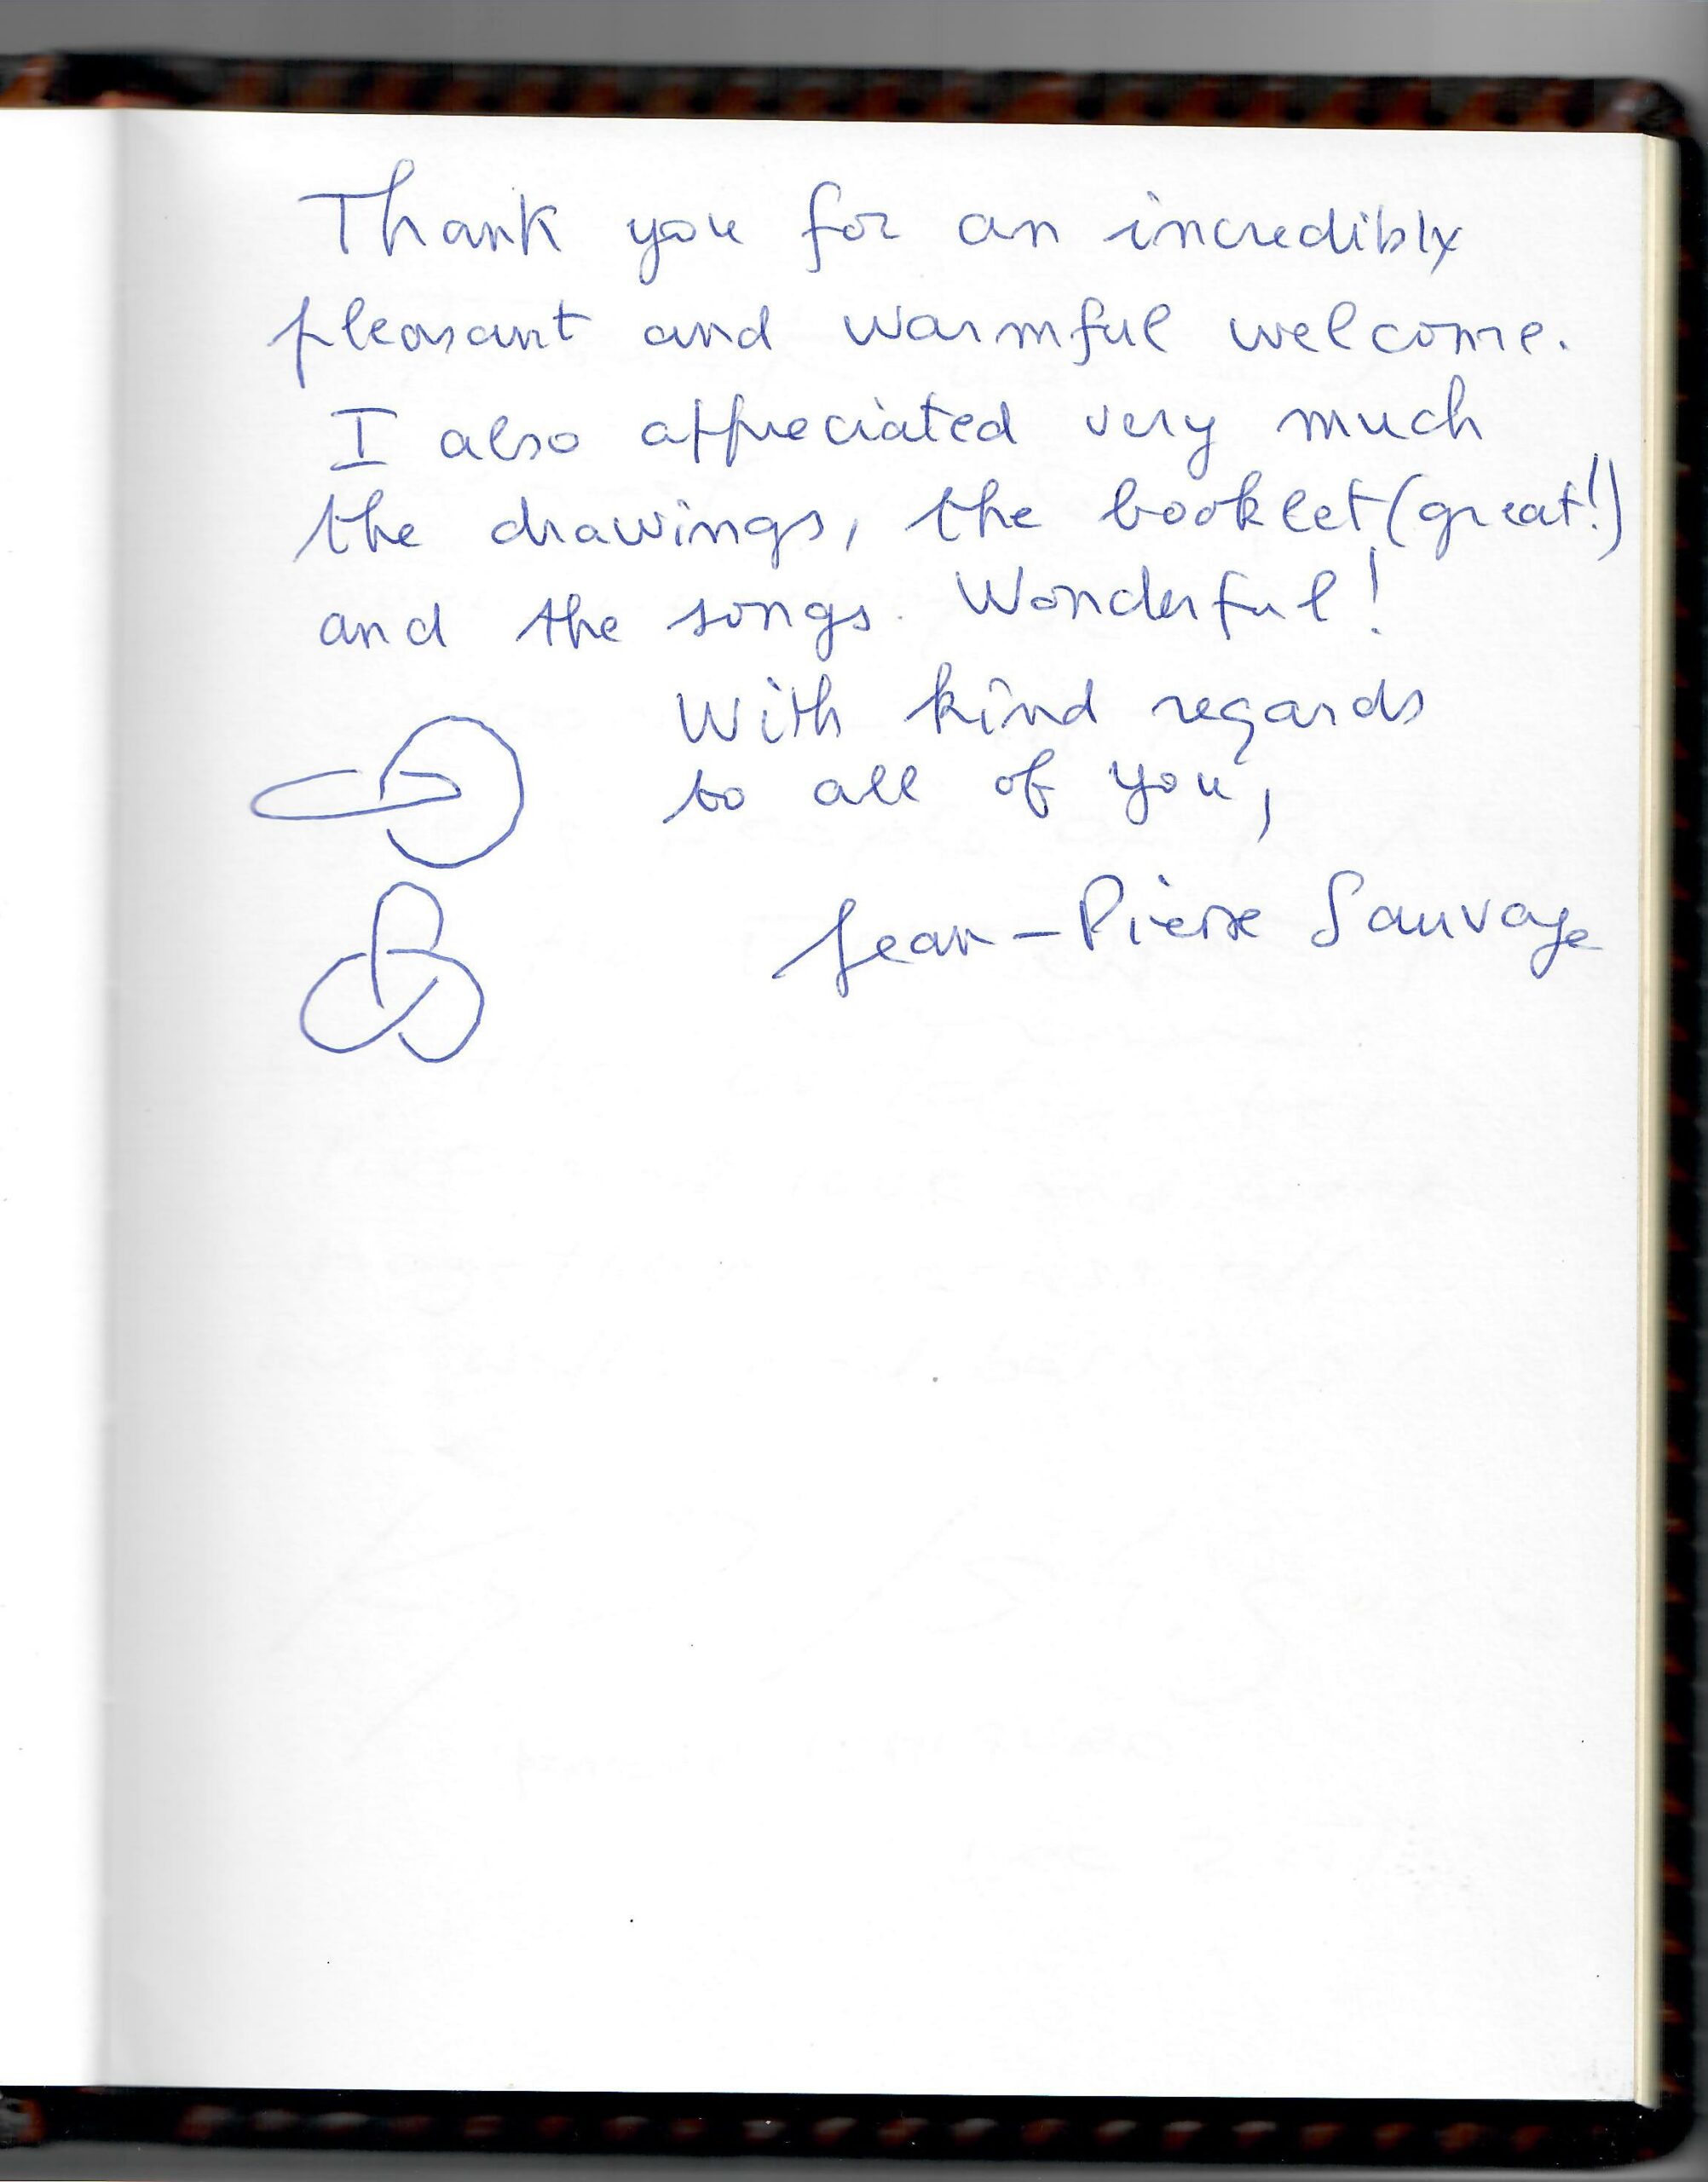 Thank you for an incredibly
pleasant and warmful welcome.
I also appreciated very much
the drawings, the booklet (great!)
and the songs. Wonderful!
With kind regards
to all of you,
Jean-Pierre Sauvage